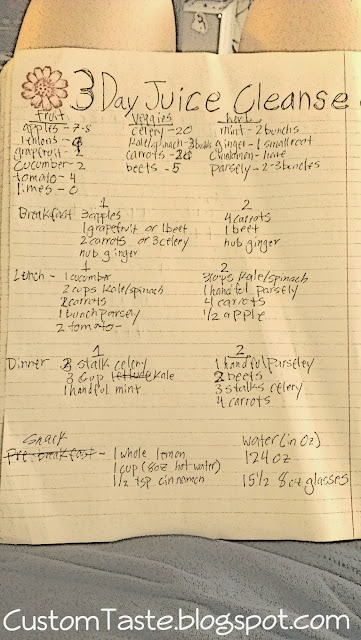 3 Day Juice Cleanse
fruit veggies herb
apples - 7-8 celery - 20 mint - 2 bunchs
lemons - kale/spinach - 3 bunch ginger - 1 small root
grapefruit - 2 carrots - 20 cinnamon - have
cucumber - 2 beets - 5 parsely - 2-3 buncles
tomato - 4
limes - 0
1 2
Breakfast 3 apples 4 carrots
1 grapefruit or 1 beet 1 beet
2 carrots or 3 celery nub ginger
nub ginger
1 2
Lunch - 1 cucumber 3 cups kale/spinach
2 cups kale/spinach 1 handful parsely
2 carrots 4 carrots
1 bunch parsely 1/2 apple
2 tomato -
1 2
Dinner 3 stalk celery 1 handful parseley
3 cup kale 2 beets
1 handful mint 3 stalks celery
4 carrots
Snack water (in oz)
Pre-breakfast - 1 whole lemon 124 oz
1 cup (8oz hot water) 15 1/2 8 oz glasses
1/2 tsp cinnamon
CustomTaste.blogspot.com